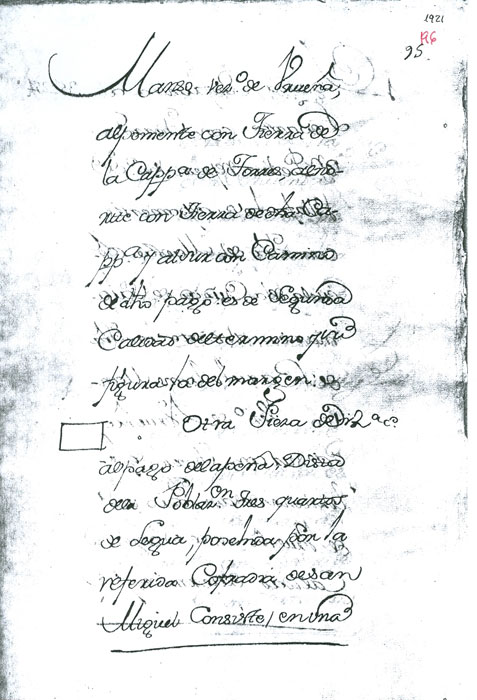 1921
R6
95.
Marzo vez.º de Brueña,
al poniente con Tierra de
la Capp.ª de Torres, al nor-
te con Tierra de dha Ca-
pp.ª y al sur con Camino
de dho pago es de Segunda
Calidad del termino y su
figura es la del margen:
Otra Pieza de
al pago de la peña, Dista
de la Poblaz.on tres quartos
de Legua, posehida por la
referida Cofradia de san
Miguel Consiste, en una